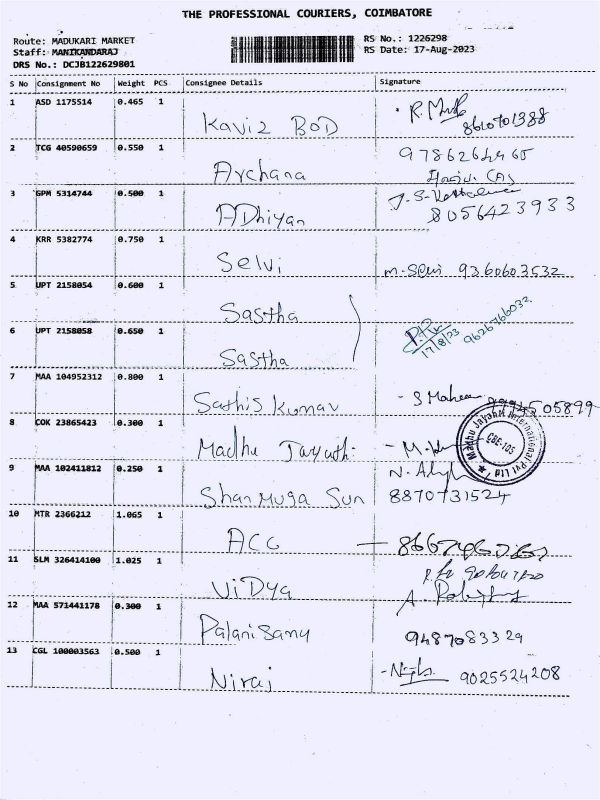 THE PROFESSIONAL COURIERS, COIMBATORE
Route: MADUKARI MARKET
Staff: MANIKANDARAJ
DRS No.: DCJB122629801
RS No.: 1226298
RS Date: 17-Aug-2023
S No Consignment No Weight PCS Consignee Details Signature
1 ASD 1175514 0.465 1 Kaviz BOD
8610701388
2 TCG 40590659 0.550 1 Archana 9786264465
3 GPM 5314744 0.500 1 ADhiyan 8056423933
4 KRR 5382774 0.750 1 Selvi m-selvi 9360603532
5 UPT 2158054 0.600 1 Sastha
17/8/23 9626766032
6 UPT 2158058 0.650 1 Sastha
7 MAA 104952312 0.800 1 Sathis Kumar
8 COK 23865423 0.300 1 Madhu
Madhu Jayanti International Pvt Ltd
CBE-105
9 MAA 102411812 0.250 1 Shanmuga Sun 8870731524
10 MTR 2366212 1.065 1 ACC
11 SLM 326414100 1.025 1 ViDya
12 MAA 571441178 0.300 1 Palanisamy
9487083329
13 CGL 100003563 0.500 1 Niraj 9025524208